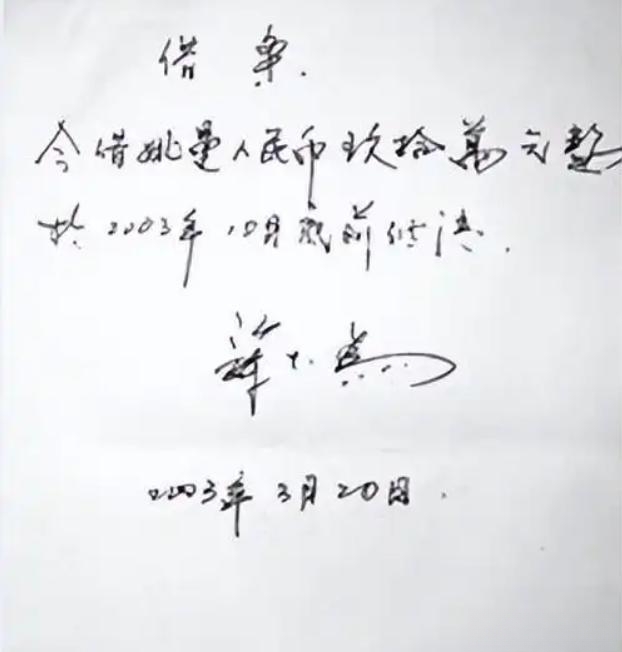 借条
今借姚曼人民币玖拾萬元整
于2003年10月底前付清.
2003年3月20日.